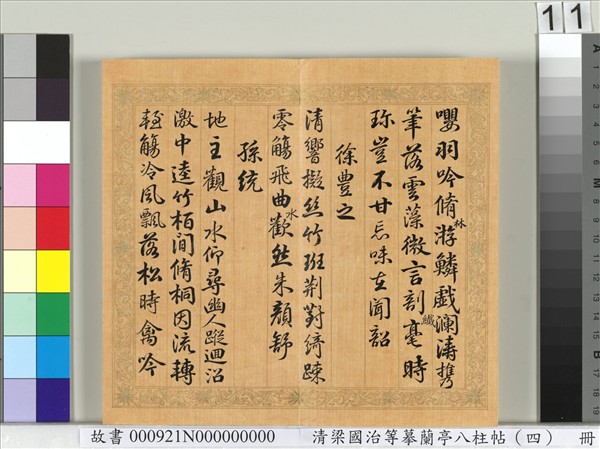 嚶羽吟脩林游鱗戲瀾濤攜
筆落雲藻微言剖纖毫時
珍豈不甘忘味在聞韶
徐豊之
清響擬絲竹班荆對綺疎
零觴飛曲水歡然朱顏舒
孫統
地主觀山水仰尋幽人蹤迴沼
激中逵竹栢間脩桐因流轉
輕觴冷風飄落松時禽吟
11
故書 000921N000000000
清梁國治等摹蘭亭八柱帖(四)
冊